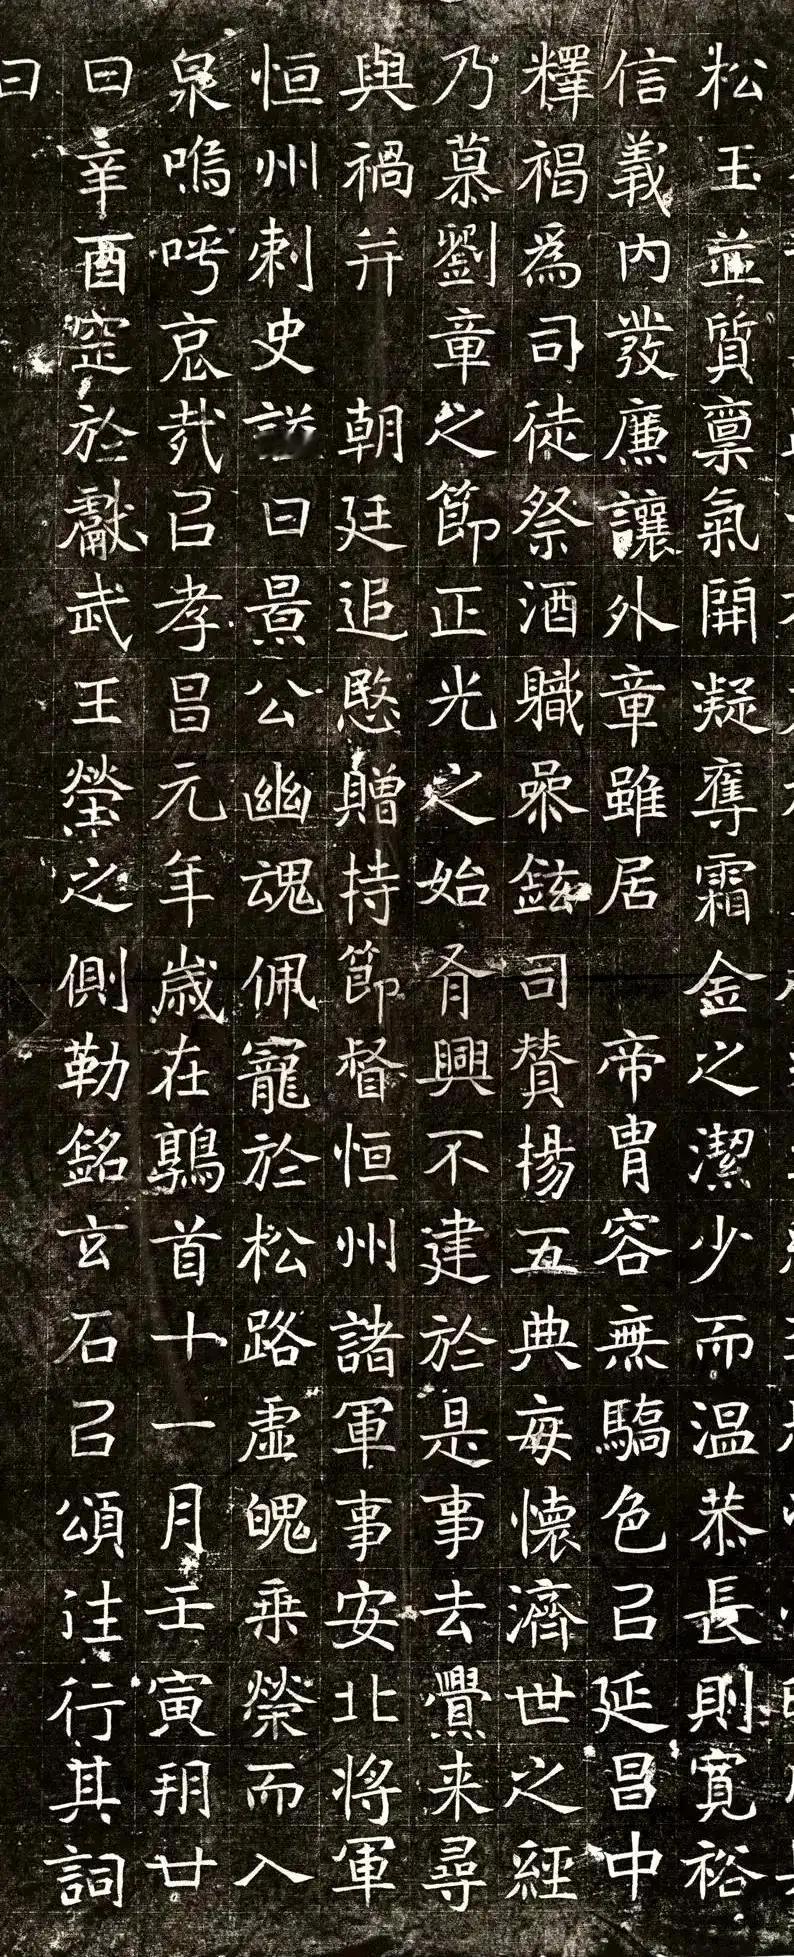 松玉並質禀氣開凝奪霜金之潔少而温恭長則寛裕
信義内發廉讓外章雖居帝胄容無驕色㠯延昌中
釋褐爲司徒祭酒職叅鉉司贊揚五典每懷濟世之經
乃慕劉章之節正光之始胥興不建於是事去舋来尋
與禍并朝廷追愍贈持節督恒州諸軍事安北將軍
恒州刺史謚曰景公幽魂佩寵於松路虛魄乗榮而入
泉嗚呼哀㢤㠯孝昌元年歲在鶉首十一月壬寅朔廿
日辛酉窆於獻武王塋之側勒銘玄石㠯頌往行其詞
曰